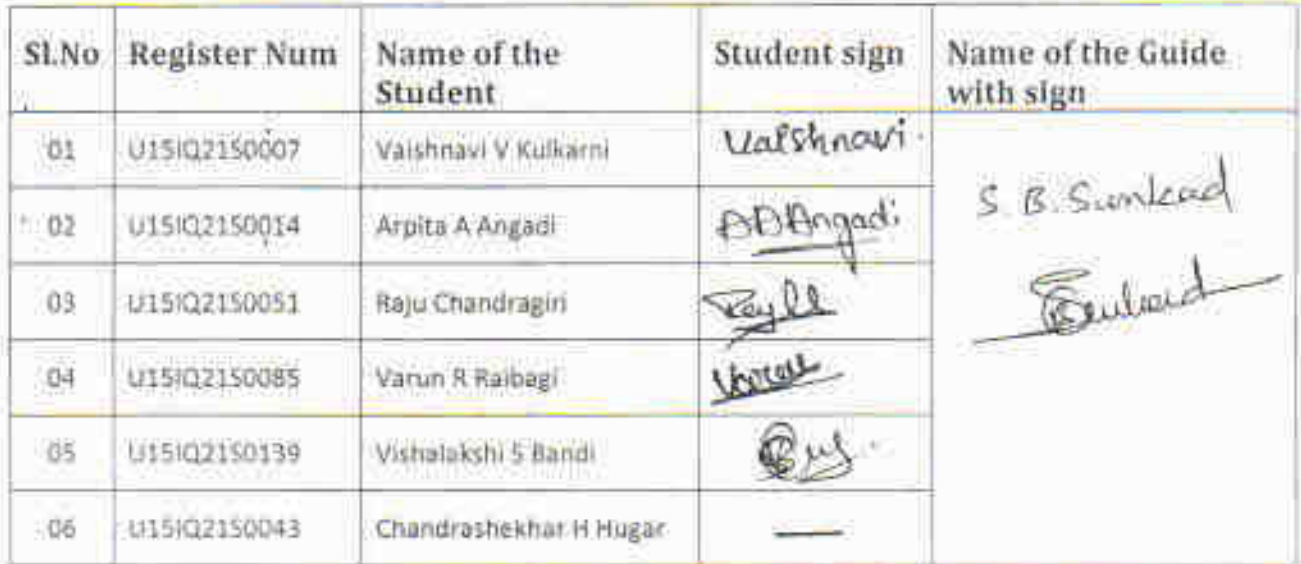 Sl.No Register Num Name of the Student Student sign Name of the Guide with sign
01 U15IQ21S0007 Vaishnavi V Kulkarni Vaishnavi
02 U15IQ21S0014 Arpita A Angadi AAAngadi
S. B. Sunkad
03 U15IQ21S0051 Raju Chandragiri
04 U15IQ21S0085 Varun R Raibagi
05 U15IQ21S0139 Vishalakshi S Bandi
06 U15IQ21S0043 Chandrashekhar H Hugar —